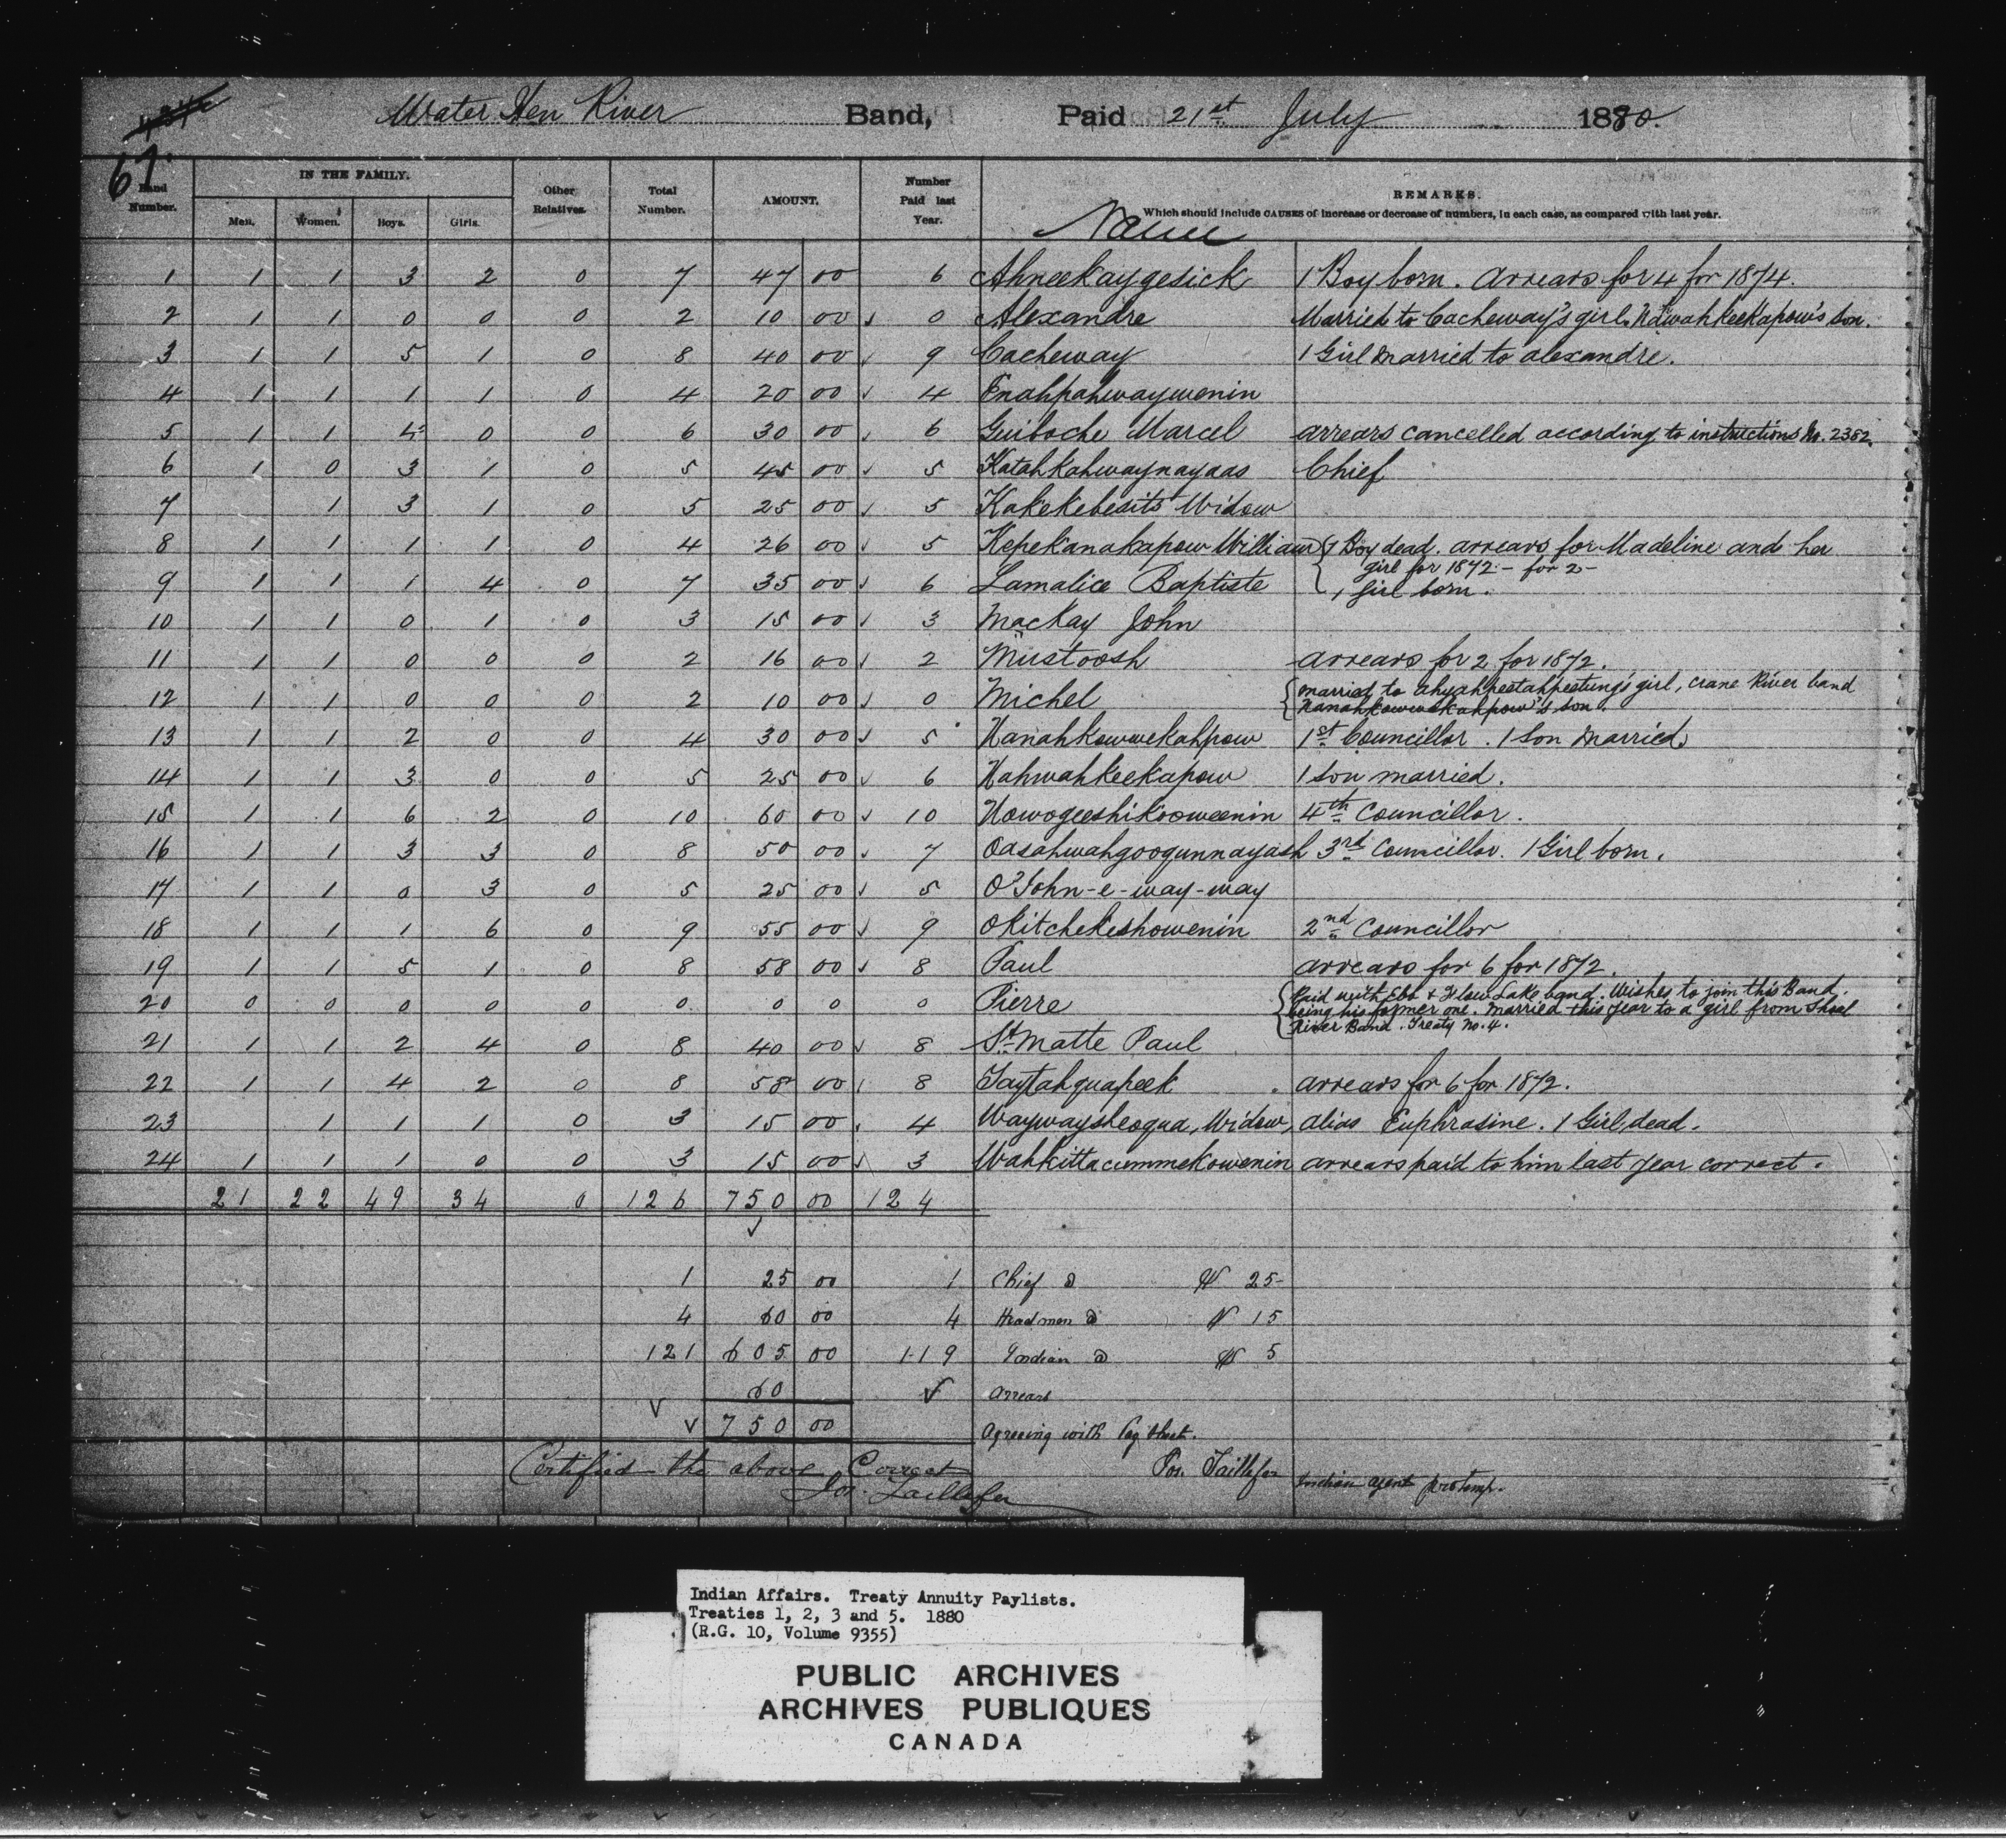 Water Hen River Band, Paid 21st July 1880.
67.
Band Number. IN THE FAMILY. Men. Women. Boys. Girls. Other Relatives. Total Number. AMOUNT. Number Paid last Year. Name REMARKS.
Which should include CAUSES of increase or decrease of numbers, in each case, as compared with last year.
1 1 1 3 2 0 7 47 00 6 Ahneekaygesick 1 Boy born. Arrears for 4 for 1874.
2 1 1 0 0 0 2 10 00 ✓ 0 Alexandre Married to Cacheway's girl. Nawahkeekapow's son.
3 1 1 5 1 0 8 40 00 ✓ 9 Cacheway 1 Girl married to alexandre.
4 1 1 1 1 0 4 20 00 ✓ 4 Enahpahwaywenin
5 1 1 4 0 0 6 30 00 ✓ 6 Guiboche Marcel arrears cancelled according to instructions No. 2382.
6 1 0 3 1 0 5 45 00 ✓ 5 Katahkahwaynayaas Chief
7 1 3 1 0 5 25 00 ✓ 5 Kakekebesits Widow
8 1 1 1 1 0 4 26 00 ✓ 5 Kepekanakapow William 1 Boy dead. arrears for Madeline and her
girl for 1872 - for 2 -
9 1 1 1 4 0 7 35 00 ✓ 6 Lamalice Baptiste 1 girl born.
10 1 1 0 1 0 3 15 00 ✓ 3 MacKay John
11 1 1 0 0 0 2 16 00 ✓ 2 Mustoosh arrears for 2 for 1872.
12 1 1 0 0 0 2 10 00 ✓ 0 Michel married to ahyahpeetahpeetung's girl, Crane River band
Nanahkowwekahpow's son.
13 1 1 2 0 0 4 30 00 ✓ 5 Nanahkowwekahpow 1st Councillor. 1 son married
14 1 1 3 0 0 5 25 00 ✓ 6 Nahwahkeekapow 1 son married.
15 1 1 6 2 0 10 60 00 ✓ 10 Nowogeeshikooweenin 4th Councillor.
16 1 1 3 3 0 8 50 00 ✓ 7 Oasahwahgoogunnayash 3rd Councillor. 1 Girl born.
17 1 1 0 3 0 5 25 00 ✓ 5 O'John-e-way-way
18 1 1 1 6 0 9 55 00 ✓ 9 Okitchekeshowenin 2nd Councillor
19 1 1 5 1 0 8 58 00 ✓ 8 Paul arrears for 6 for 1872.
20 0 0 0 0 0 0 0 0 0 Pierre Paid with Ebb & Flow Lake band. Wishes to join this Band.
being his former one. Married this year to a girl from Shoal
River Band. Treaty No. 4.
21 1 1 2 4 0 8 40 00 ✓ 8 St. Matte Paul
22 1 1 4 2 0 8 58 00 8 Taytahquapeek arrears for 6 for 1872.
23 1 1 1 0 3 15 00 4 Waywaysheoqua, Widow, alias Euphrasine. 1 Girl dead.
24 1 1 1 0 0 3 15 00 ✓ 3 Wahkittacummekowenin arrears paid to him last year correct.
21 22 49 34 0 126 750 00 124
✓
1 25 00 1 Chief @ $ 25-
4 60 00 4 Headmen @ $ 15
121 605 00 119 Indian @ $ 5
60 ✓ Arrears
✓ ✓ 750 00 Agreeing with Pay Sheet.
Certified the above Correct Jos. Taillefer Indian agent protemp.
Jos. Taillefer
Indian Affairs. Treaty Annuity Paylists.
Treaties 1, 2, 3 and 5. 1880
(R.G. 10, Volume 9355)
PUBLIC ARCHIVES
ARCHIVES PUBLIQUES
CANADA